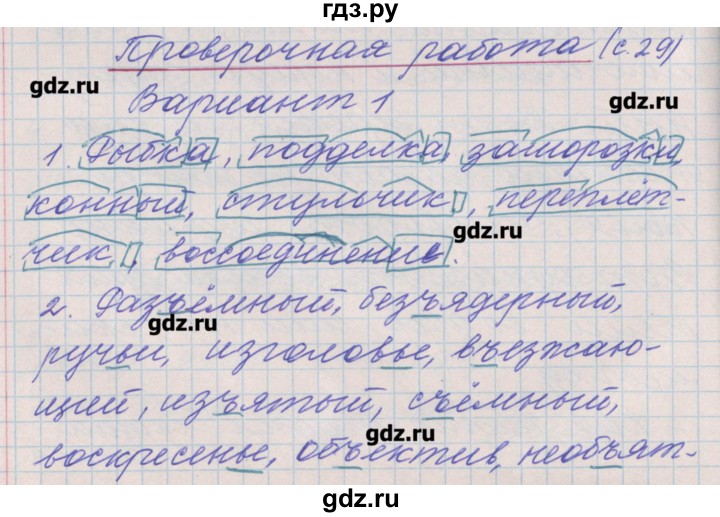 гдз.ру
Проверочная работа (с.29)
gdz.ru
gdz.ru
Вариант 1
1. Рыбка, подделка, заморозки,
конный, стульчик, переплёт-
gdz.ru
чик, воссоединение.
2. Разъёмный, безъядерный,
gdz.ru
ручьи, изголовье, въезжаю-
щий, изъятый, съёмный,
gdz.ru
воскресенье, объектив, необъят-
gdz.ru